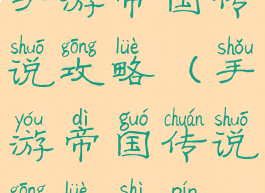 手游帝国传
shuō gōng lüè shǒu
说攻略（手
yóu dì guó chuán shuō
游帝国传说
gōng lüè shì pín